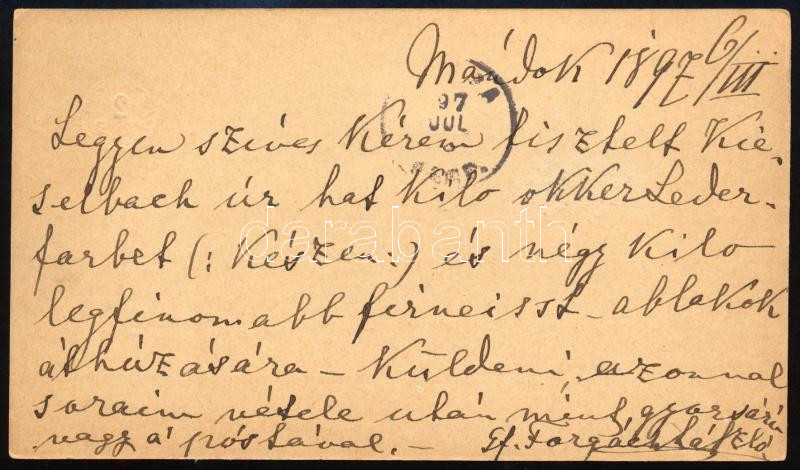 Mándok 1897 6/III
97
JUL
Legyen szíves kérem tisztelt Kie-
selbach úr hat kilo okker Leder-
farbet (: Készen :) és négy kilo
darabanth
legfinomabb firneisst - ablakok
áthúzására - küldeni, azonnal
soraim vétele után mint gyorsáru
vagy á póstával. - Gf. Forgách László